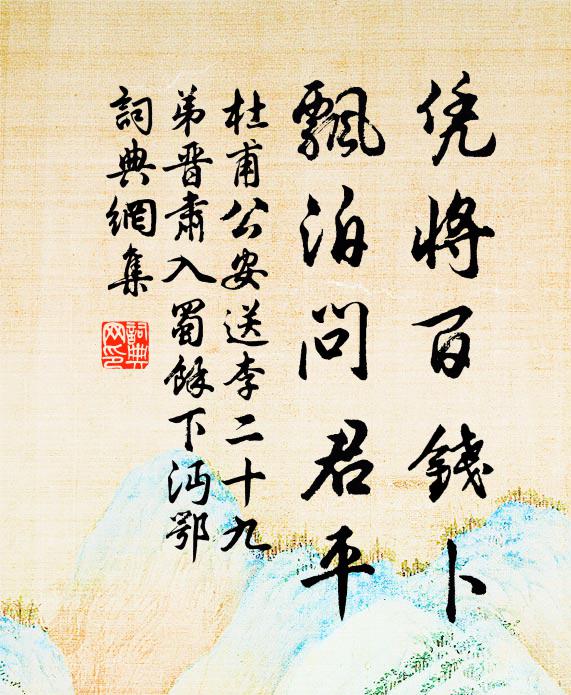 凭將百錢卜
飄泊問君平
杜甫公安送李二十九
弟晋肅入蜀餘下沔鄂
詞典網集
詞典
网印